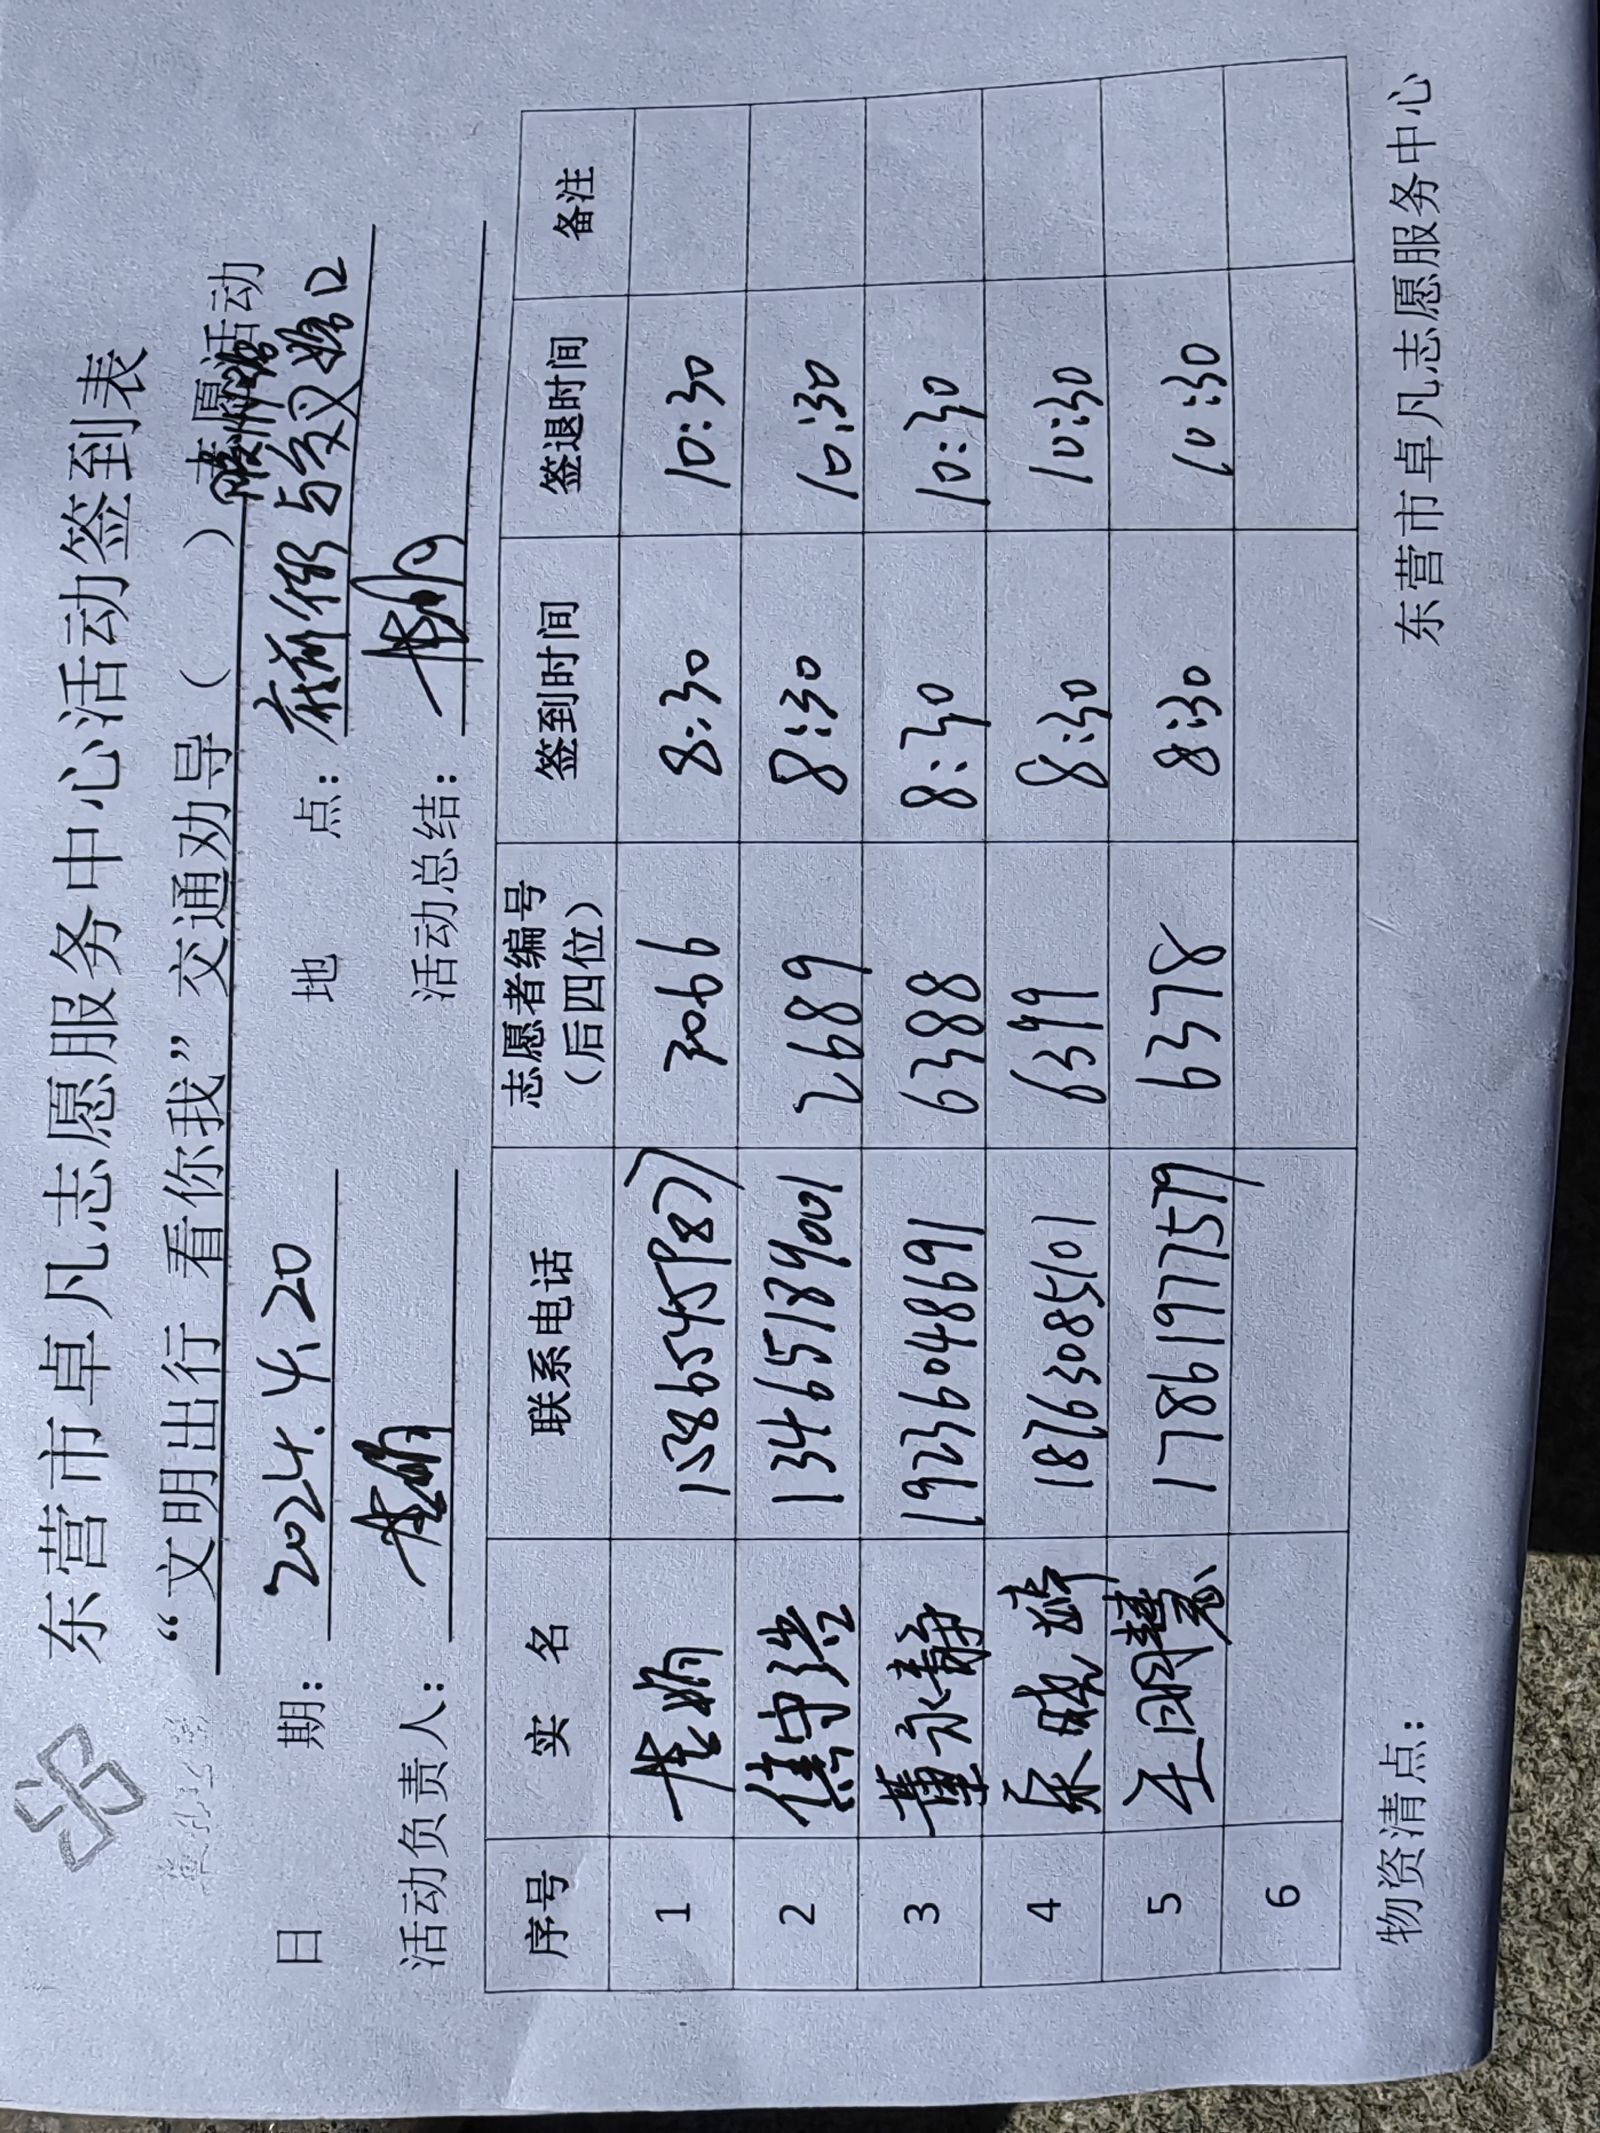 东营市卓凡志愿服务中心活动签到表
“文明出行 看你我”交通劝导（ ）志愿活动
日 期：2024.4.20 地 点：府前街与交叉路口
活动负责人： 活动总结：
序号 实 名 联系电话 志愿者编号（后四位） 签到时间 签退时间 备注
1 3066 8:30 10:30
2 焦守浩 13465189001 2689 8:30 10:30
3 董永静 19236048691 6388 8:30 10:30
4 18763085101 6399 8:30 10:30
5 王明慧 17861977579 6378 8:30 10:30
6
物资清点：
东营市卓凡志愿服务中心